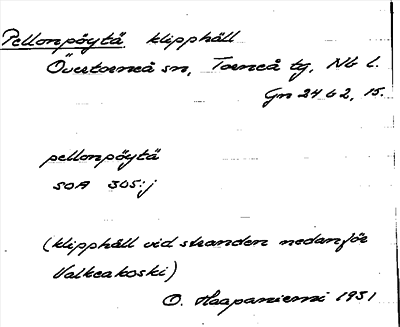 Pellonpöytä klipphäll
Övertorneå sn, Torneå tg, Nb l.
Gn 24 b 2, 15.
pellonpöytä
SOA 305:j
(klipphäll vid stranden nedanför
Valkeakoski)
O. Haapaniemi 1931